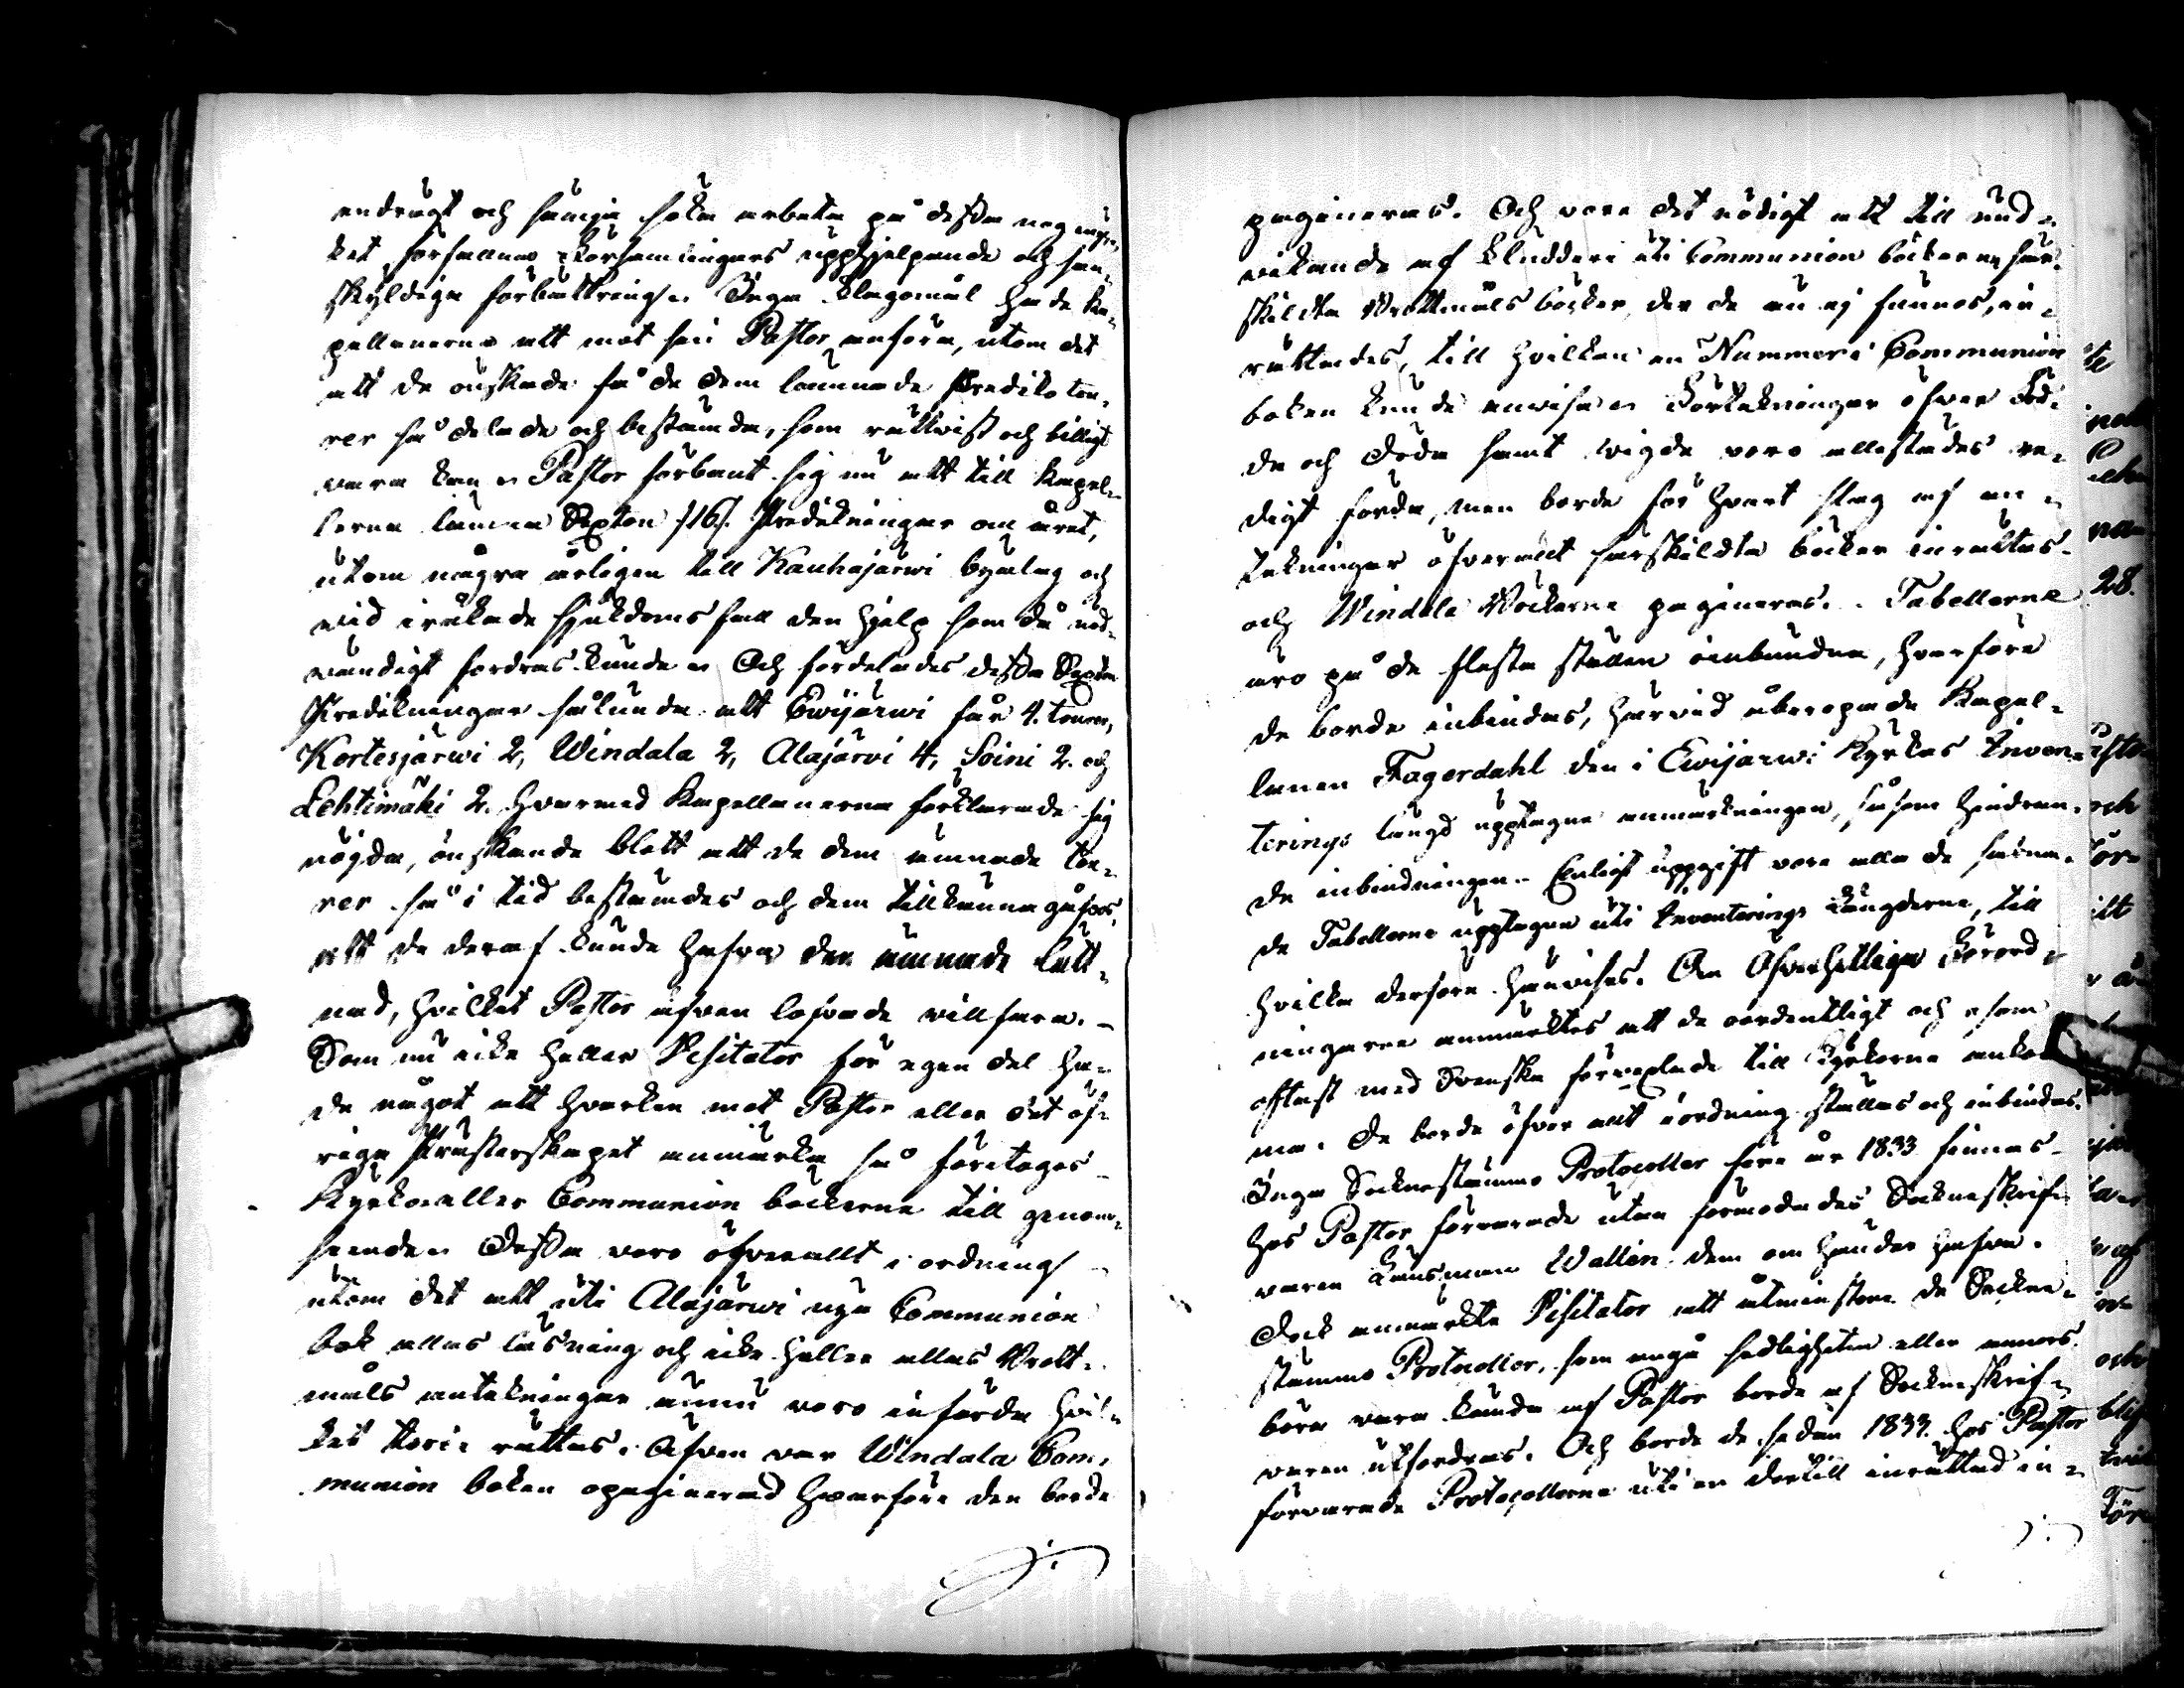 endrägt och sämja söka arbeta på dessa nog myc-
ket förfallna Församlingars upphjelpande och san-
skyldiga förbättring. Inga klagomål hade Ka-
pellanerne att mot sin Pastor anföra, utom det
att de önskade få de dem lämnade Prediko tou-
rer så delade och bestämda, som rättvist och billigt
vara kan. Pastor förbant sig nu att till Kapel-
lerna lämna Sexton /:16:/ Predikningar om året,
utom några årligen till Kauhajärwi byalag och
vid iråkade sjukdoms fall den hjelp som då nöd-
vändigt fordras kunde. Och fördelades dessa Sexton
Predikningar sålunda att Ewijärwi får 4. tourer,
Kortesjärwi 2, Windala 2, Alajärvi 4, Soini 2. och
Lehtimäki 2. hvarmed Kapellanerna förklarade sig
nöjda, önskande blott att de dem ämnade tou-
rer så i tid bestämdes och dem tillkänna gåfvos,
att de deraf kunde hafva den ämnade lätt-
nad, hvilket Pastor äfven lofvade villfara. -
Som nu icke heller Visitator för egen del ha-
de något att hvarken mot Pastor eller det öf-
riga Presterskapet anmärka så företogos
Kyrko eller Communion böckerna till genom-
seende. Dessa voro öfverallt i ordning
utom det att uti Alajärwi nya Communion
bok allas läsning och icke heller allas Brott-
måls antekningar ännu voro införda hvil-
ket bör rättas. Äfven var Windala Com-
munion boken opaginerad hvarföre den borde
pagineras. Och vore det nödigt att till und-
vikande af kludderi uti Communion böckerna sär-
skildta Brottmåls böcker, der de nu ej funnos, in-
rättades, till hvilken en Nummer i Communion
boken kunde anvisa. Förtekningar öfver Föd-
de och Döda samt Wigde voro allestädes re-
digt förda, men borde för hvart slag af an-
tekningar öfverallt särskildta böcker inrättas
och Windala Böckerne pagineras. Tabellerne
äro på de flesta ställen oinbundna, hvarföre
de borde inbindas, härvid åberopade Kapel-
lanen Fagerdahl den i Ewijärwi Kyrkas Inven-
terings längd upptagne anmärkningen, såsom hindran-
de inbindningen. Enligt uppgift vore alla de saknade
de Tabellerne upptagna uti Inventerings Längderne, till
hvilka derföre hänvises. Om Öfverhetliga Förord-
ningarne anmärktes att de oordentligt och som
oftast med Svenska förvexlade till Kyrkorne anko-
ma. De borde öfver allt i ordning ställas och inbindas.
Inga Sockenstämmo Protocoller före år 1833 finnas
hos Pastor förvarade utan förmodades Sockneskrif-
varen Länsman Wallin dem om händer hafva.
Dock anmärkte Visitator att åtminstone de Sockne-
stämmo Protocoller, som angå sedligheten eller annors
böra vara kända af Pastor borde af Sockneskrif-
varen utfordras. Och borde de sedan 1833. hos Pastor
förvarade Protocollerne uti en dertill inrättad in-